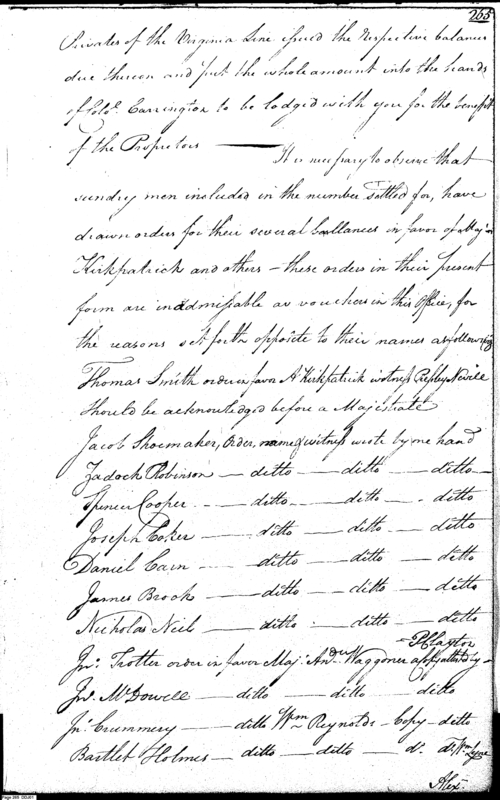 265
Privates of the Virginia Line issued the respective balances
due thereon and put the whole amount into the hands
of Colo. Carrington to be lodged with you for the benefit
of the Proprietors — It is necessary to observe that
sundry men included in the number settled for, have
drawn orders for their several ballances in favor of Majr.
Kirkpatrick and others – these orders in their present
form are inadmissable as vouchers in this Office, for
the reasons set forth opposite to their names as following
Thomas Smith order in favor A Kirkpatrick witness Presley Nevill
Should be acknowledged before a Majestrate
Jacob Shoemaker, Order, name & witness wrote by one hand
Zadock Robinson — ditto — ditto — ditto
Spencer Cooper — ditto — ditto — ditto
Joseph Coker — ditto — ditto — ditto
Daniel Cain — ditto — ditto — ditto
James Brook — ditto — ditto — ditto
Nicholas Neil — ditto — ditto — ditto
Jno. Trotter order in favor Maj. Andw. Waggoner a Copy attested by P Claxton
Jno. McDowell — ditto — ditto — ditto
Jno. Crummery — ditto Wm Reynolds – Copy – ditto
Bartlet Holmes — ditto — ditto — do. do. Wm. Lyne
Alex.
Page 265